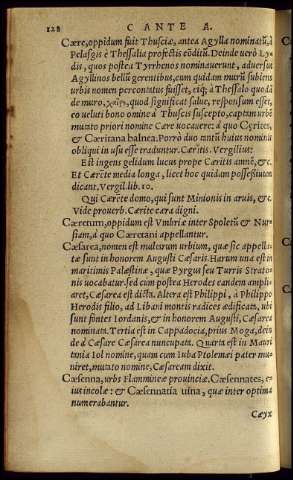 128 CANTE A.
Cære, oppidum fuit Thusciæ, antea Agylla nominatũ, à
Pelasgis è Thessalia profectis cõditũ. Deinde verò Ly-
dis, quos postea Tyrrhenos nominauerunt, aduersus
Agyllinos bellũ gerentibus, cum quidam murũ subiens
urbis nomen percontatus fuisset, eiq; à Thessalo quodã
de muro, χαῖρε, quod significat salue, responsum esset,
eo ueluti bono omine à Thuscis suscepto, captam urbẽ
mutato priori nomine Cære uocauere: à quo Cærites,
& Cæritana balnea. Porrò duo anteà huius nominis
obliqui in usu esse traduntur. Cæritis. Vergilius:
Est ingens gelidum lucus prope Cæritis amnẽ, &c.
Et Cærete media longa, licet hoc quidam possessiuum
dicant. Vergil. lib. 10.
Qui Cærete domo, qui sunt Minionis in aruis, &c.
Vide prouerb. Cærite cera digni.
Cæretum, oppidum est Vmbriæ inter Spoletũ & Nur-
siam, à quo Cæretani appellantur.
Cæsarea, nomen est multarum urbium, quæ sic appella-
tæ sunt in honorem Augusti Cæsaris. Harum una est in
maritimis Palæstinæ, quæ Pyrgus seu Turris Strato-
nis uocabatur: sed cum postea Herodes eandem ampli-
aret, Cæsarea est dicta. Altera est Philippi, à Philippo
Herodis filio, ad Libani montis radices ædificata, ubi
sunt fontes Iordanis, & in honorem Augusti, Cæsarea
nominata. Tertia est in Cappadocia, prius Moga, dein-
de à Cæsare Cæsarea nuncupata. Quarta est in Mauri
tania Iol nomine, quam cum Iuba Ptolemæi pater mu-
niret, mutato nomine, Cæsaream dixit.
Cæsenna, urbs Flammineæ prouinciæ. Cæsennates, e-
ius incolæ: & Cæsennatia uina, quæ inter optima
numerabantur.
Cæyx